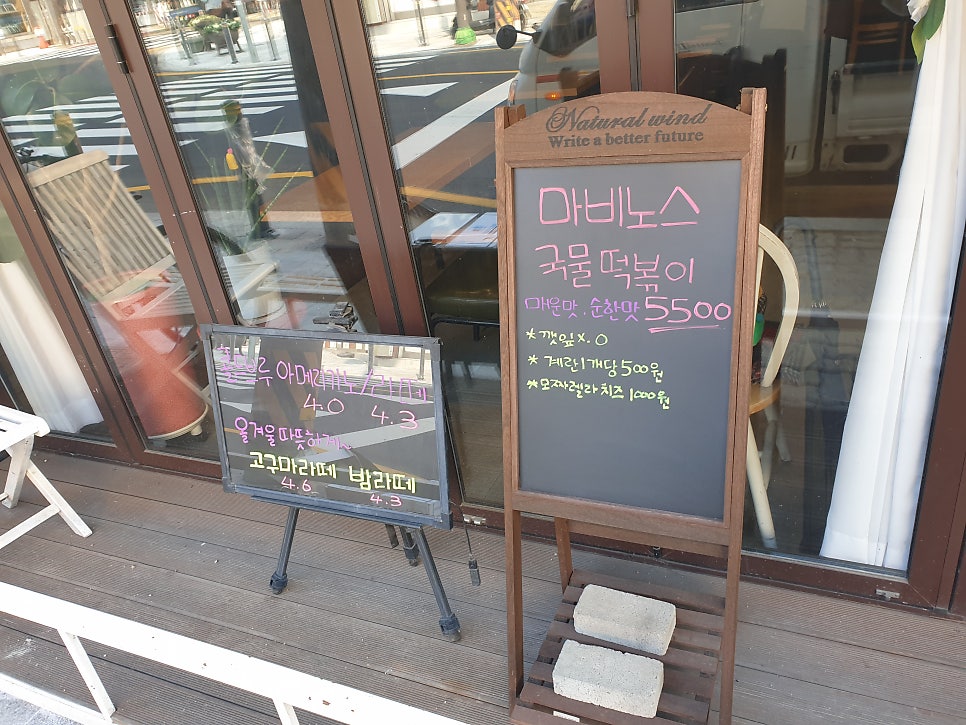 아메리카노/
4.0 4.3
올겨울따뜻하게~
고구마라떼 밤라떼
4.6 4.3
Natural wind
Write a better future
마비노스
국물 떡볶이
매운맛. 순한맛 5500
* 깻잎 x. 0
* 계란 1개당 500원
* 모짜렐라 치즈 1000원